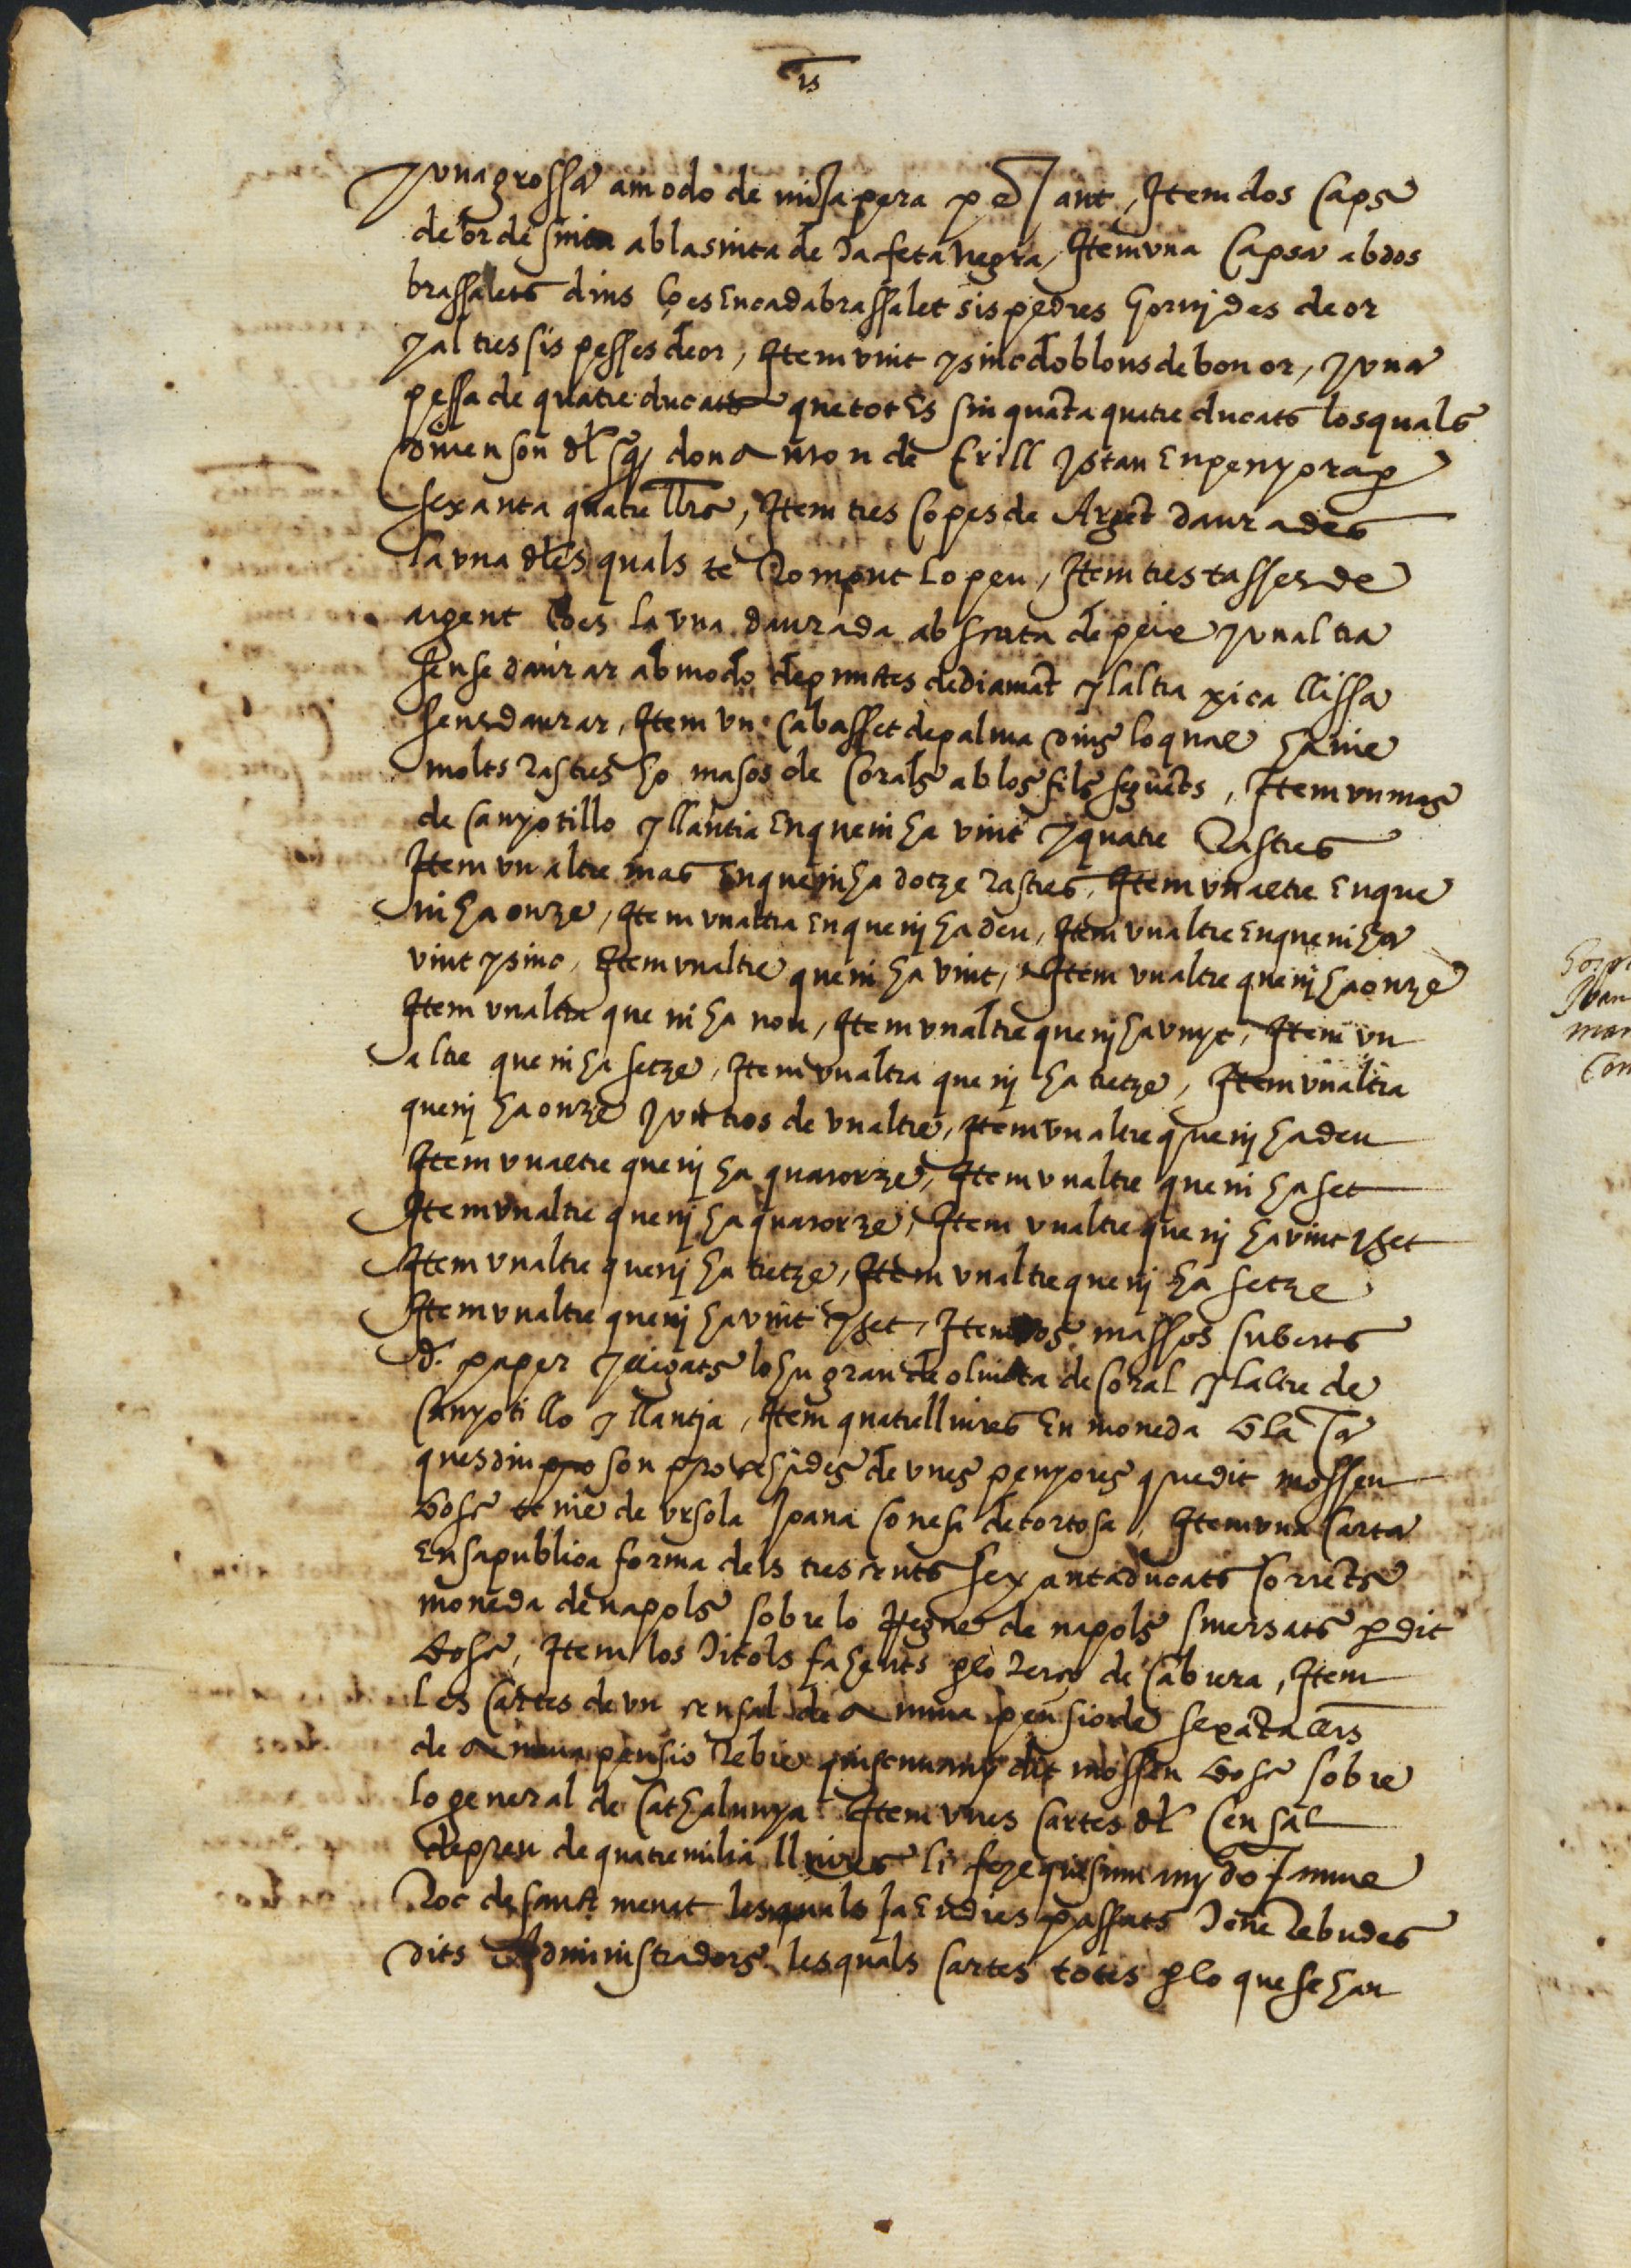 y una grossa a modo de mija pera p Jant, Item dos caps
de or de sinta ab la sinta de tafeta negra, Item una capsa ab dos
brassalets dins ço es en cada brassalet sis pedres gornjdes de or
y altres sis pesses de or, Item vint y sinc doblons de bon or, y una
pessa de quatre ducats que tot es sinquãta quatre ducats los quals
diuen son dl sor don Ramon de Erill y stan en penyora per
sexanta quatre llrs, Item tres copes de Argẽt daurades
la una dles quals te romput lo peu, Item tres tasses de
argent ço es la una daurada ab fruta de peu y un altra
sense daurar ab modo de puntes de diamãt y laltra xica llissa
sens daurar, Item un cabasset de palma dins lo qual ha nie
molts rastres ho masos de corals ab los fils seguẽts, Item un mas
de canyotillo y llantia en que ni ha vint y quatre Rastres
Item un altre mas en que ni ha dotze rastres, Item un altre en que
ni ha onze, Item un altra en que nj ha deu, Item un altre en que ni ha
vint y sinc, Item un altre que ni ha vint, Item un altre que nj ha onze
Item un altre que ni ha nou, Item un altre que nj ha vuyt, Item un
altre que ni ha setze, Item un altra que nj ha tretze, Item un altra
que nj ha onze y un tros de un altre, Item un altre que nj ha deu
Item un altre que nj ha quatorze, Item un altre que ni ha set
Item un altre que nj ha quatorze, Item un altre que nj ha vint y set
Item un altre que nj ha tretze, Item un altre que nj ha setze
Item un altre que nj ha vint y set, Item dos massos cuberts
d. paper y lligats lo hu gran de oliueta de coral y laltre de
canyotillo y llantja, Item quatre lliures en moneda bla ca
ques diu son prosehides de unes penyores que dit mossen
bosc te nie de ursola Joana conesa de tortosa, Item una carta
en sa publica forma dels trescents sexanta ducats corrẽts
moneda de napols sobre lo Regne de napols smersats per dit
bosc, Item los titols fahents per lo ters de cabrera, Item
les cartes de un censal de annua pensio de sexãta llrs
de annua pensio rebie quiscun any dit mossen bosc sobre
lo general de cathalunya Item unes cartes dl censal
de preu de quatre milia lliures li feye quiscun any do Jaume
Roc de sanct menat les quals ja en dies passats tene rebudes
dits Administradors les quals cartes totes per lo que se han